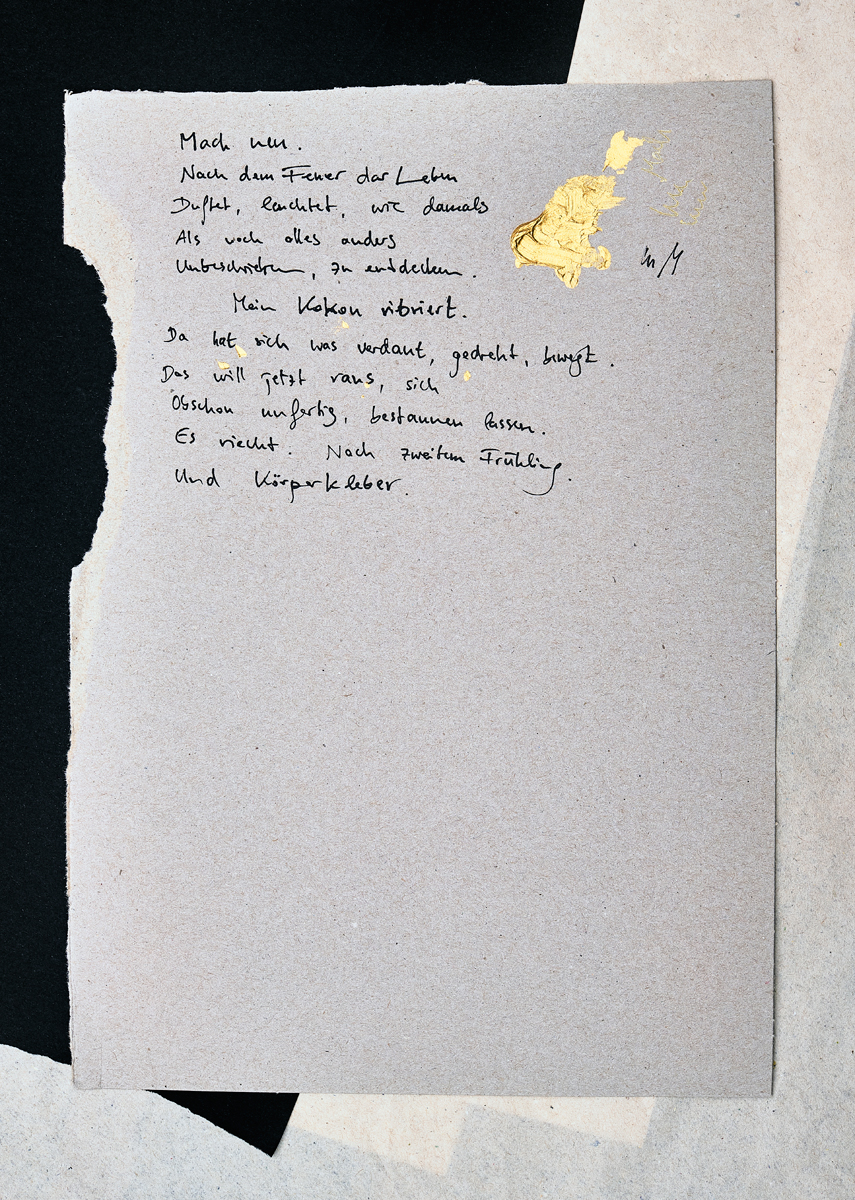 Mach neu.
Nach dem Feuer das Leben
Duftet, leuchtet, wie damals
Als noch alles anders
Unbeschrieben, zu entdecken.
Mein Kokon vibriert.
Da hat sich was verdaut, gedreht, bewegt.
Das will jetzt raus, sich
Obschon unfertig, bestaunen lassen.
Es riecht. Nach zweitem Frühling.
Und Körperkleber.